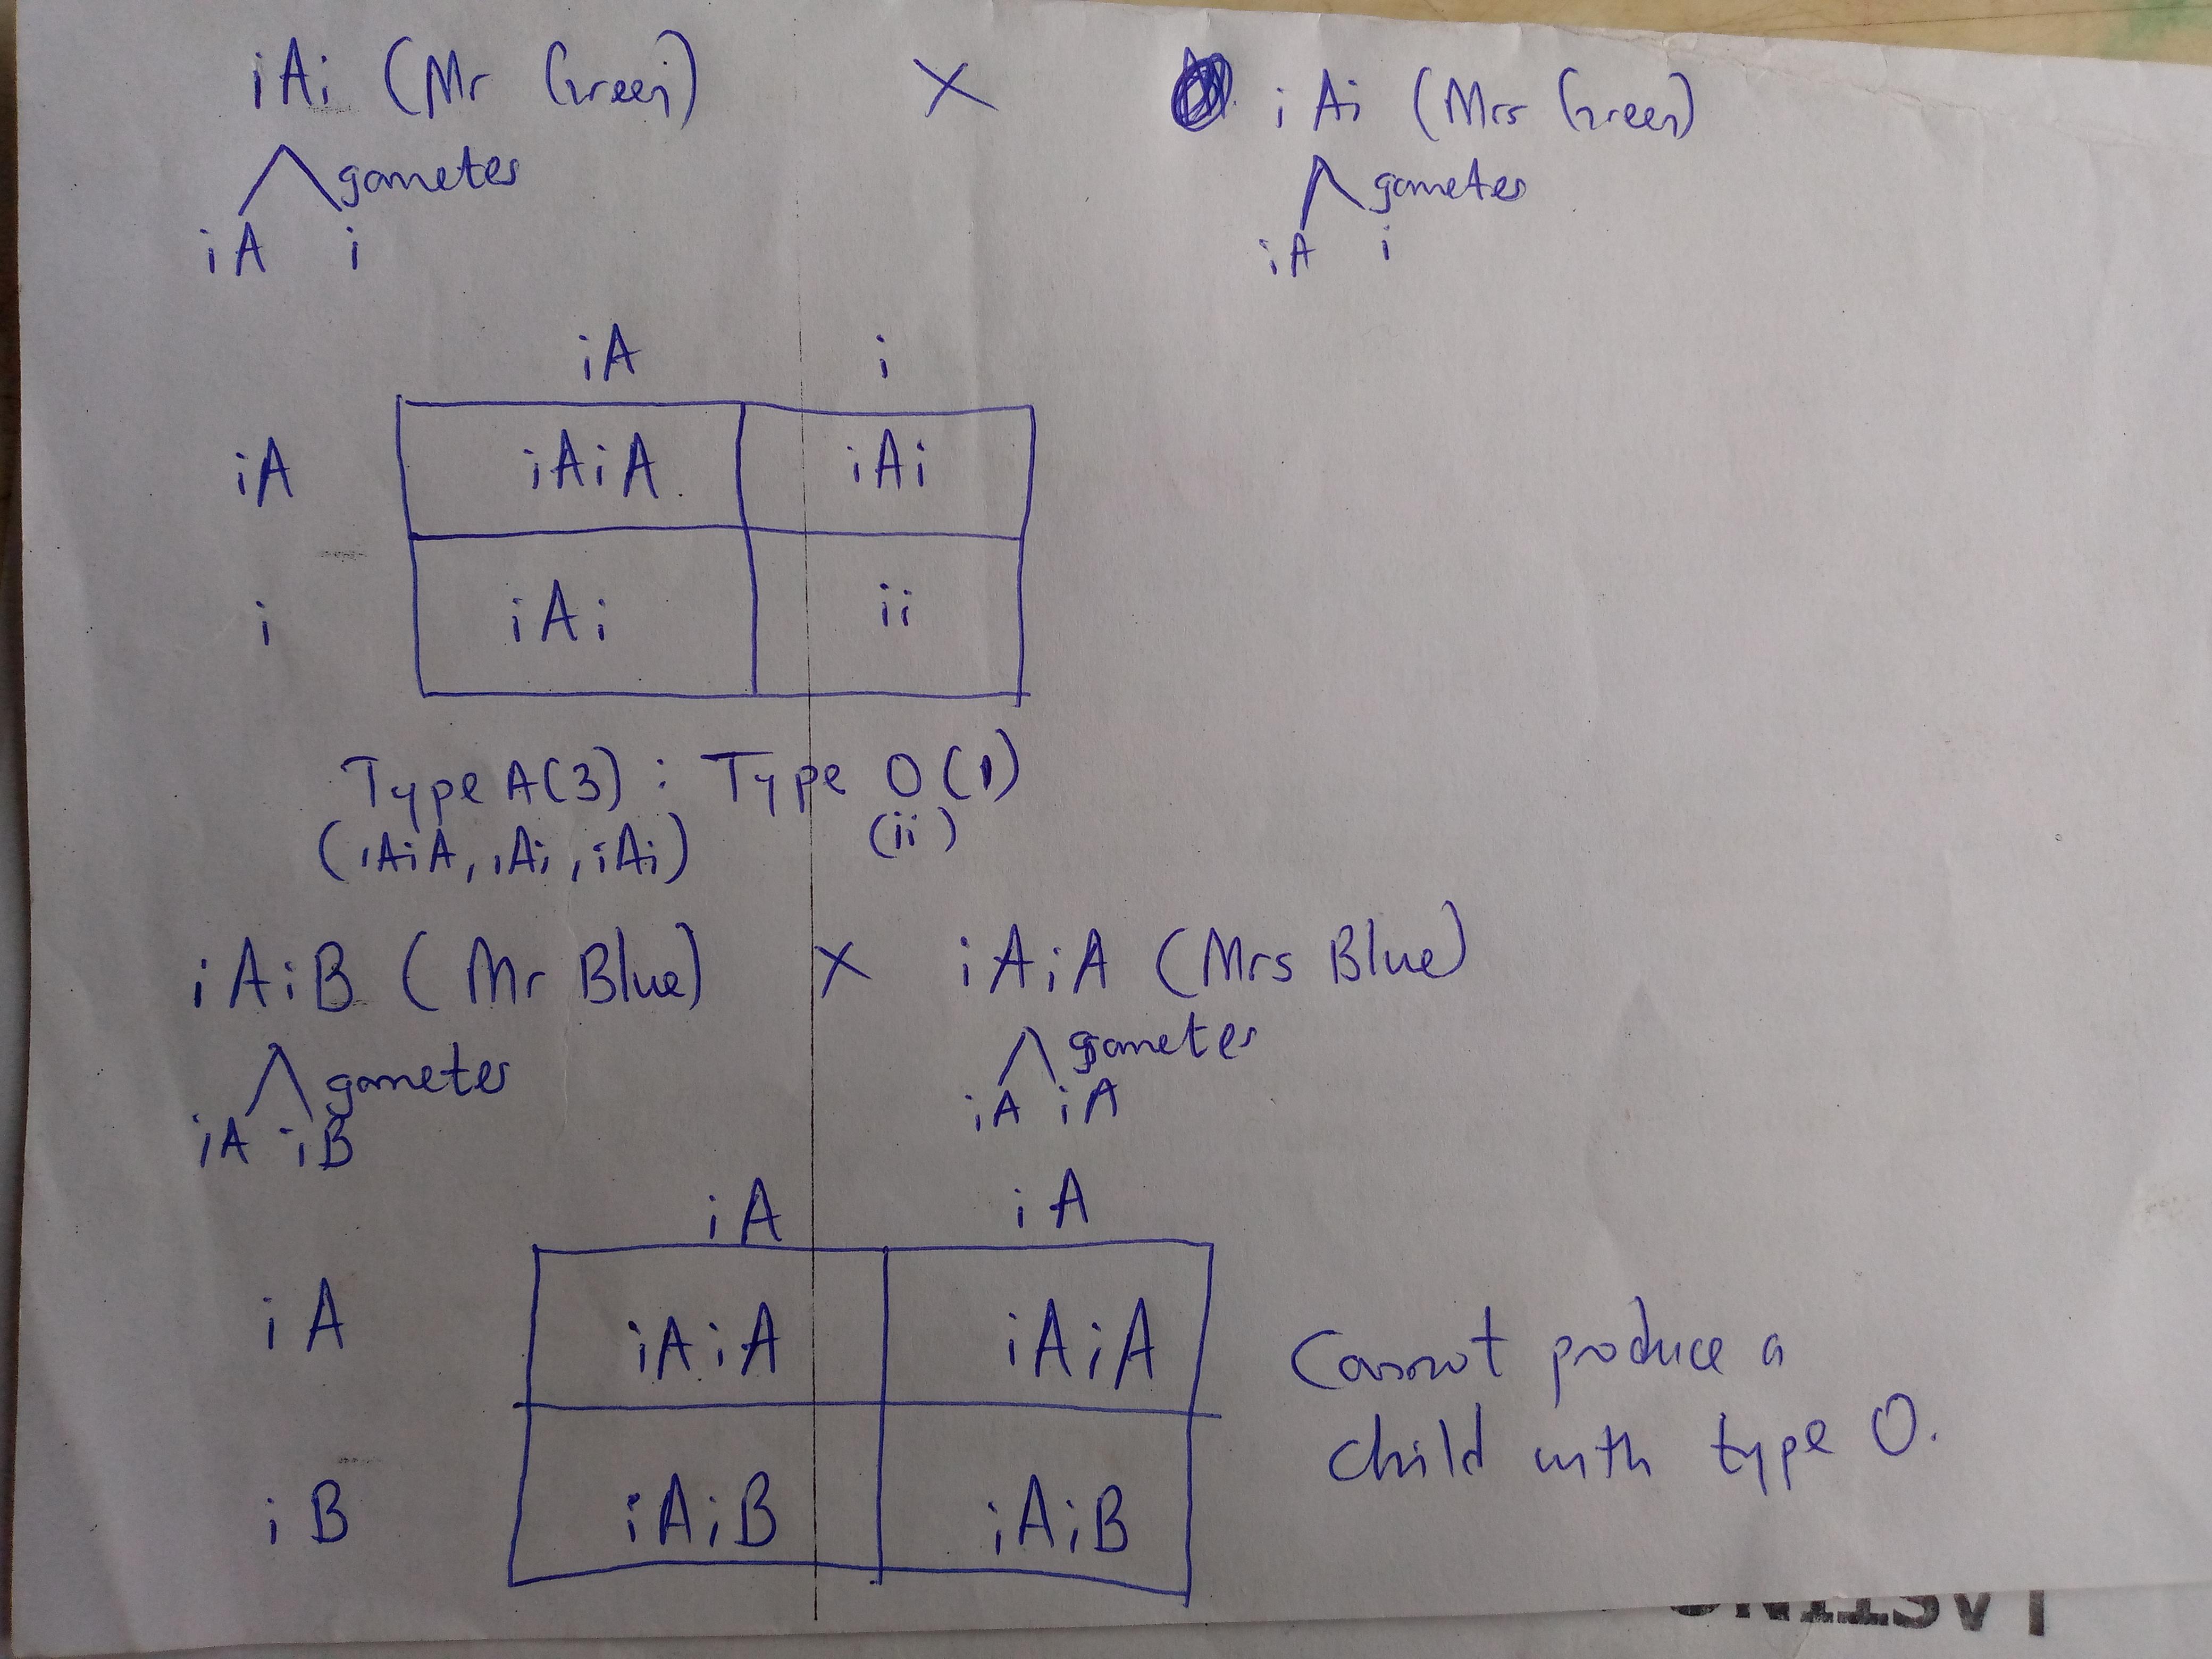 iAi (Mr Green) X iAi (Mrs Green)
gametes gametes
iA i iA i
iA i
iA iAiA iAi
i iAi ii
Type A(3) : Type O(1)
(iAiA, iAi, iAi) (ii)
iAiB (Mr Blue) X iAiA (Mrs Blue)
gametes gametes
iA iB iA iA
iA iA
iA iAiA iAiA
iB iAiB iAiB
Cannot produce a
child with type O.
LASTING